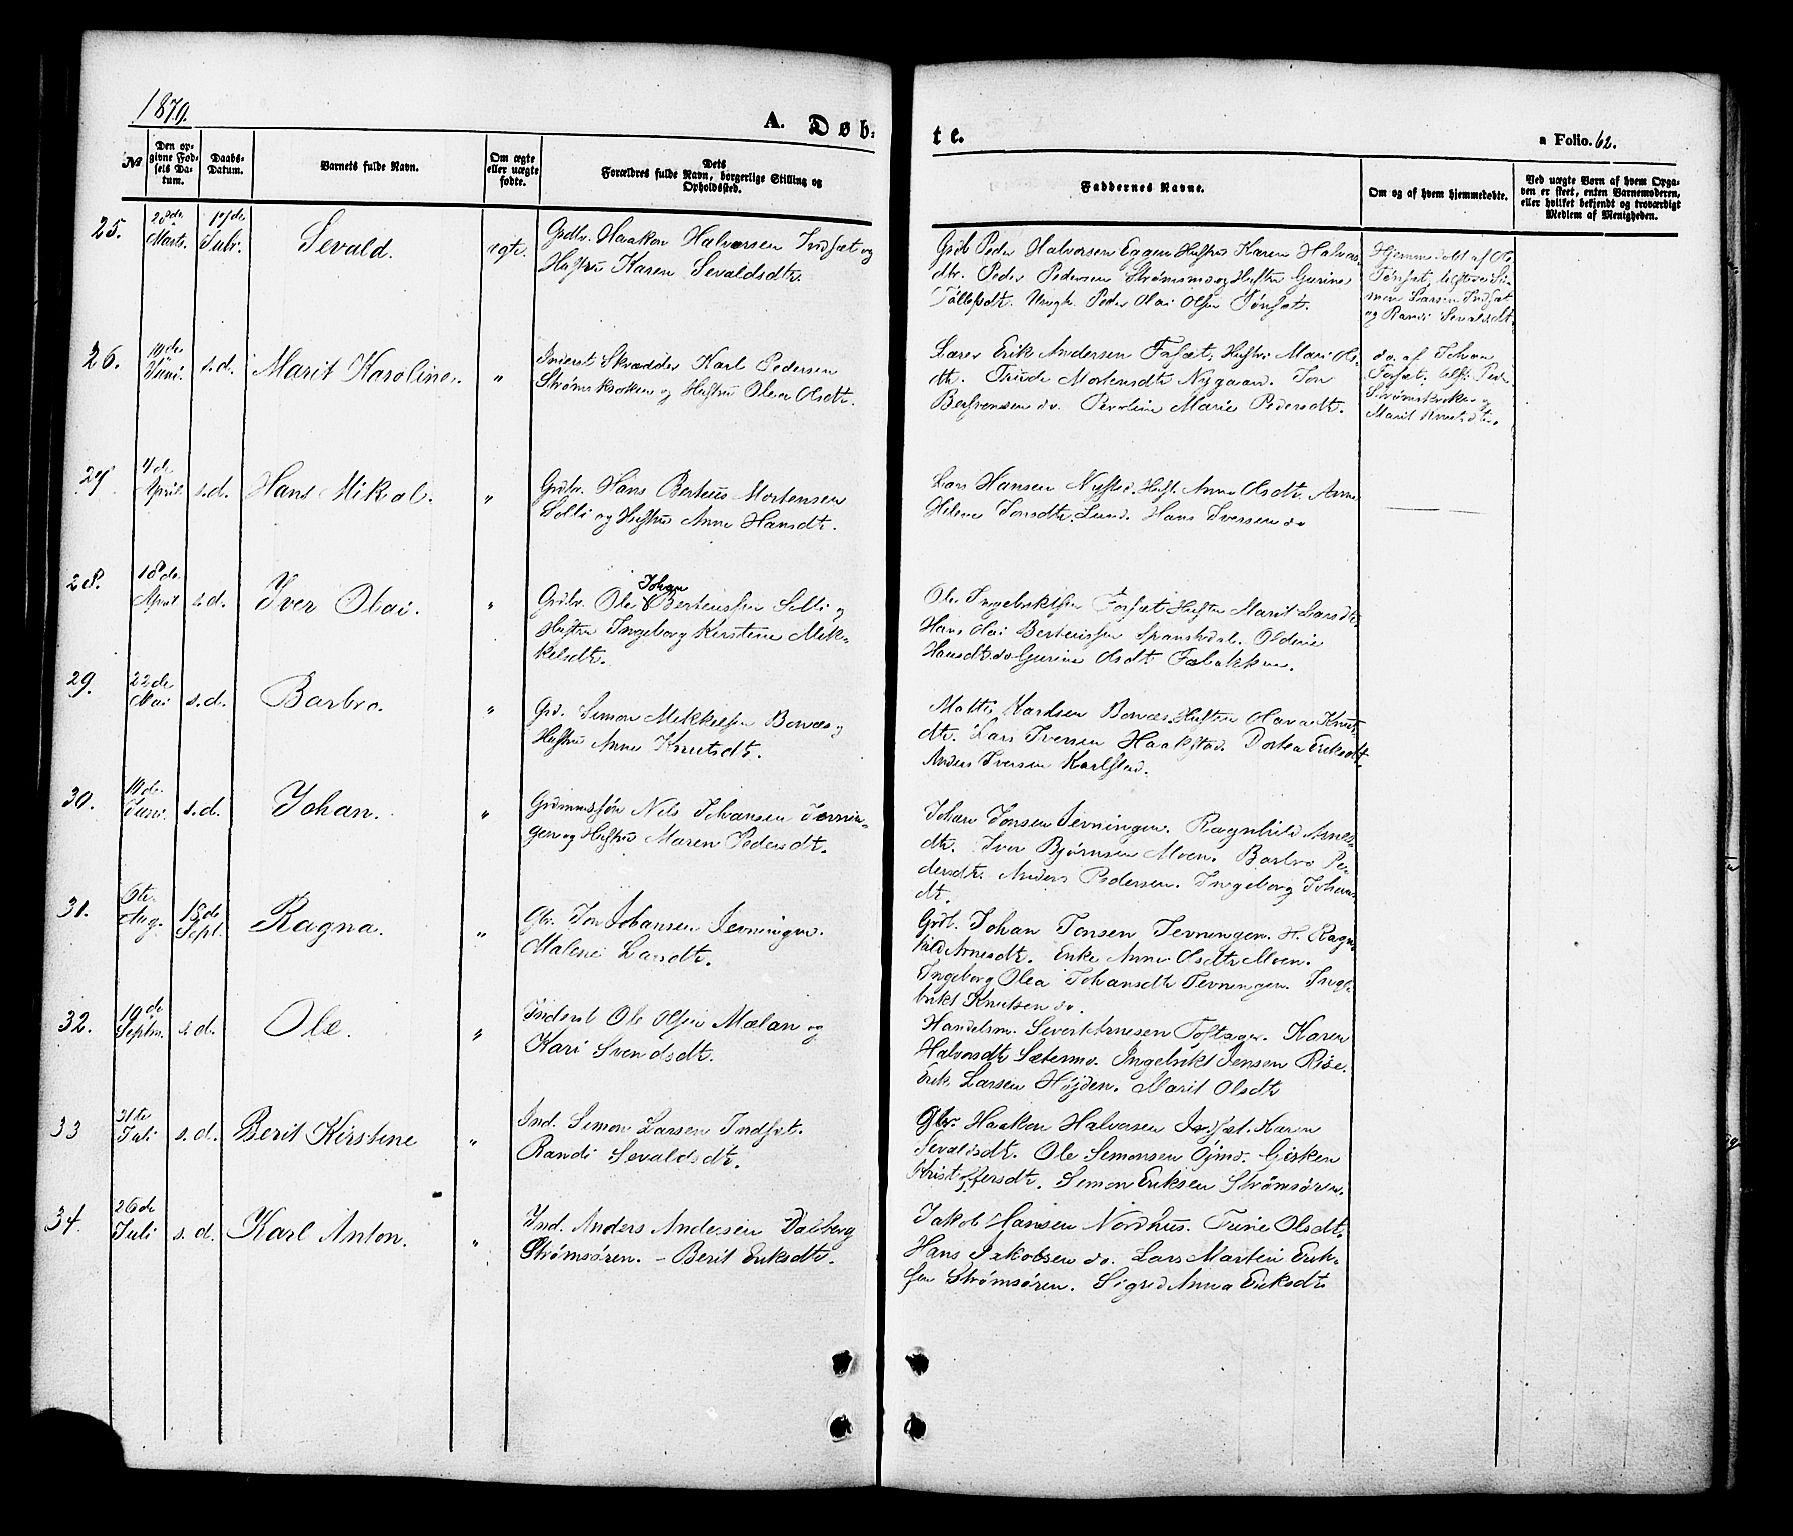 1870.
A. Døb-
te.
a Folio. 62.
№
Den op-
givne Fød-
sels Da-
tum.
Daabs-
Datum.
Barnets fulde Navn.
Om ægte
eller uægte
fødte.
Dets
Forældres fulde Navn, borgerlige Stilling og
Opholdssted.
Faddernes Navne.
Om og af hvem hjemmedøbte.
Ved uægte Børn af hvem Opga-
ven er skeet, enten Barnemoderen,
eller hvilket bekjendt og troværdigt
Medlem af Menigheden.
25.
Marts.
17de
Juli.
Sevald.
ægte.
Grdbr. Haakon Halvorsen Indsæt og
Hustru Karen Sevaldsdtr.
Grdb Peder Halvorsen Eggen Hustru Karen Halvors-
dtr. Peder Pedersen Strømsmo og Hustru Gurine
Tollefsdt. Ungk. Peder Olai Olsen Tørsæt.
Hjemmedøbt af Ole
Tørsæt, bekftr Si-
mon Larsen Indsæt
og Randi Sevaldsdt.
26.
19de
Juni.
s.d.
Marit Karoline.
"
Inderst Skrædder Karl Pedersen
Strømskroken og Hustru Olea Olsdtr.
Lærer Erik Andersen Forsæt, Hustru Mari Ols-
dtr. Trude Mortensdtr Nygaard. Jon
Berfvensen do. Peroline Marie Pedersdtr.
do. af Johan
Forsæt, bekft. Peder
Strømskroken og
Marit Knutsdtr.
27
4de
April.
s.d.
Hans Mikal.
"
Grdbr. Hans Berteus Mortensen
Solli og Hustru Anne Hansdtr.
Lars Hansen Nysted. Hust. Anne Olsdtr. Anne
Helene Jonsdtr. Lund. Hans Iversen do
28.
18de
April
s.d.
Iver Olai.
"
Johan
Grdbr. Ole Berteussen Solli og
Hustru Ingeborg Kirstine Mik-
kelsdtr.
Ole Ingebriktsen Forsæt Hustru Marit Larsdtr.
Hans Olai Berteussen Spansdal. Oldine
Hansdtr. do Gurine Olsdt Fæbakken.
29.
22de
Mai
s.d.
Barbro.
"
Grd. Simon Mikkelsen Bonæs og
Hustru Anne Knutsdtr.
Mattis Karlsen Bonæs, Hustru Olava Knuts-
dtr. Lars Iversen Haakstad. Dortea Eriksdtr
Anders Iversen Karlstad.
30.
19de
Juni.
s.d.
Johan.
"
Grdmandssøn Nils Johansen Jevnin-
gen og Hustru Maren Pedersdtr.
Johan Jonsen Jevningen. Ragnhild Arnes-
dtr. Iver Bjørnsen Moen. Barbro Pe-
dersdtr. Anders Pedersen. Ingeborg Johans-
dtr.
31.
6te.
Aug.
18de
Sept.
Ragna.
"
Gbr. Jon Johansen Jevningen.
Malene Larsdtr.
Grdb. Johan Jonsen Jevningen. H. Ragn-
hild Arnesdtr. Enke Anne Olsdtr Moen.
Ingeborg Olea Johansdtr Jevningen. Inge-
brikt Knutsen do.
32.
19de
Septbr.
s.d.
Ole.
"
Inderst Ole Olsen Mælan og
Kari Svendsdtr.
Handelsm. Sivert Arnesen Toftager. Karen
Halvorsdtr Sætermo. Ingebrikt Jensen Rise.
Erik Larsen Højden. Marit Olsdtr
33
31te
Juli
s.d.
Berit Kirstine
"
Ind. Simon Larsen Indsæt.
Randi Sevaldsdtr.
Gbr. Haakon Halvorsen Indsæt. Karen
Sevaldsdtr. Ole Simonsen Øjmo. Girken
Kristoffersdtr. Simon Eriksen Strømsøren.
34.
26de
Juli
s.d.
Karl Anton.
"
Ind. Anders Andersen Dalberg
Strømsøren. - Berit Eriksdtr.
Jakob Hansen Nordhus. Trine Olsdtr.
Hans Jakobsen do. Lars Martin Erik-
sen Strømsøren. Sigrid Anna Eriksdtr